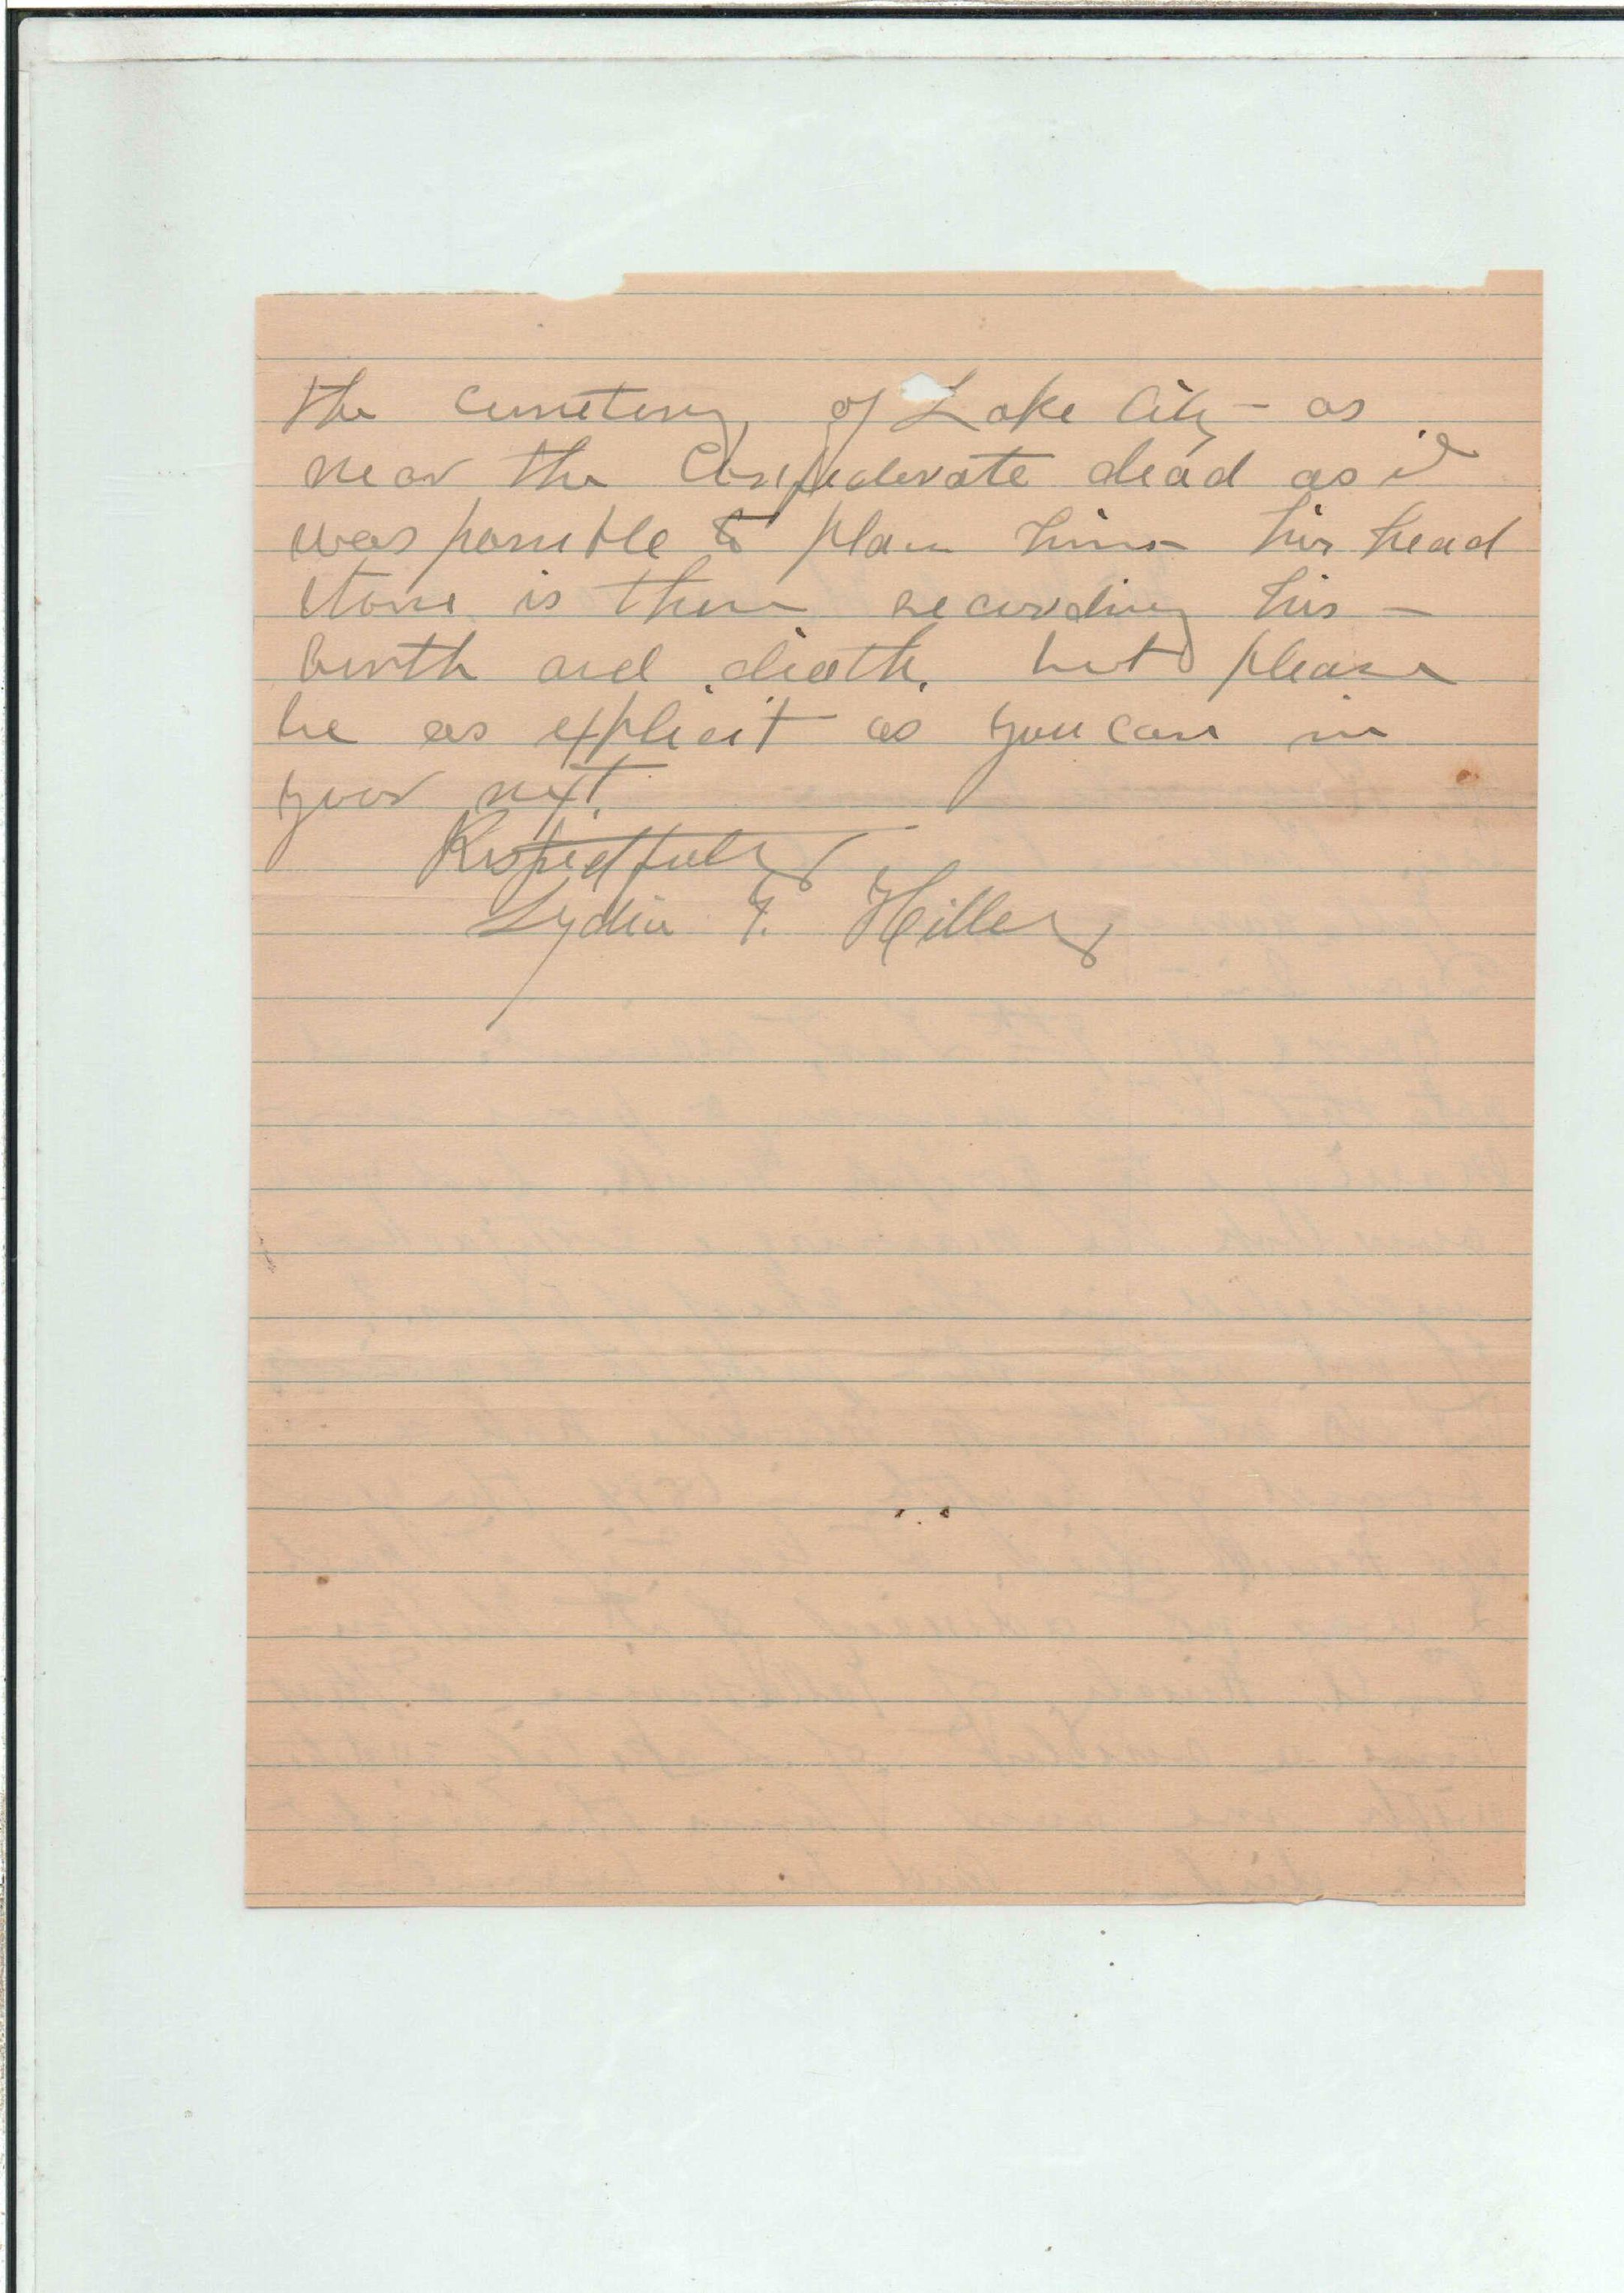 the cemetery of Lake City – as
near the Confederate dead as it
was possible to place him – his head
stone is there recording his –
birth and death. but please
be as explicit as you can in
your next.
Respectfully
Lydia Hiller